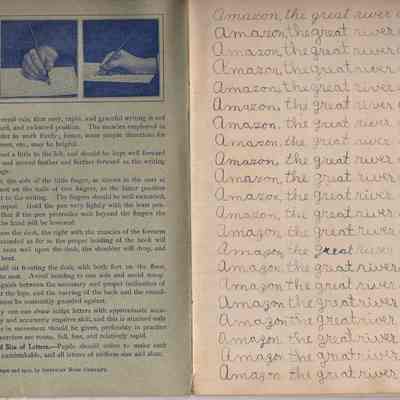 eral rule, that easy, rapid, and graceful writing is not
and awkward position. The muscles employed in
in work freely; hence, some simple directions for
etc., may be helpful.
a little to the left, and should be kept well forward
and moved farther and farther forward as the writing
the side of the little finger, as shown in the cuts at
on the nails of two fingers, as the latter position
to the writing. The fingers should be well extended,
Hold the pen very lightly with the least
that if the pen protrudes well beyond the fingers the
the hand will be lessened.
the desk, the right with the muscles of the forearm
extended so far in the proper holding of the book will
rest well upon the desk, the shoulder will drop, and
sit fronting the desk, with both feet on the floor,
the seat. Avoid bending to one side and social
between the necessary and proper inclination of
the hips, and the curving of the back and the
be constantly guarded against.
one can draw script letters with approximate
and accurately requires skill, and this is attained only
in movement should be given, preferably in practice
exercises are round, full, free, and relatively rapid.
Size of Letters.—Pupils should strive to make each
unmistakable, and all letters of uniform size and slant.
by American Book Company.
Amazon, the great river
Amazon, the great river
Amazon, the great river
Amazon, the great river
Amazon, the great river
Amazon, the great river
Amazon, the great river
Amazon, the great river
Amazon, the great river
Amazon, the great river
Amazon, the great river
Amazon, the great river
Amazon, the great river
Amazon, the great river
Amazon, the great river
Amazon, the great river
Amazon the great river
Amazon the great river
Amazon the great river
Amazon the great river
Amazon the great river